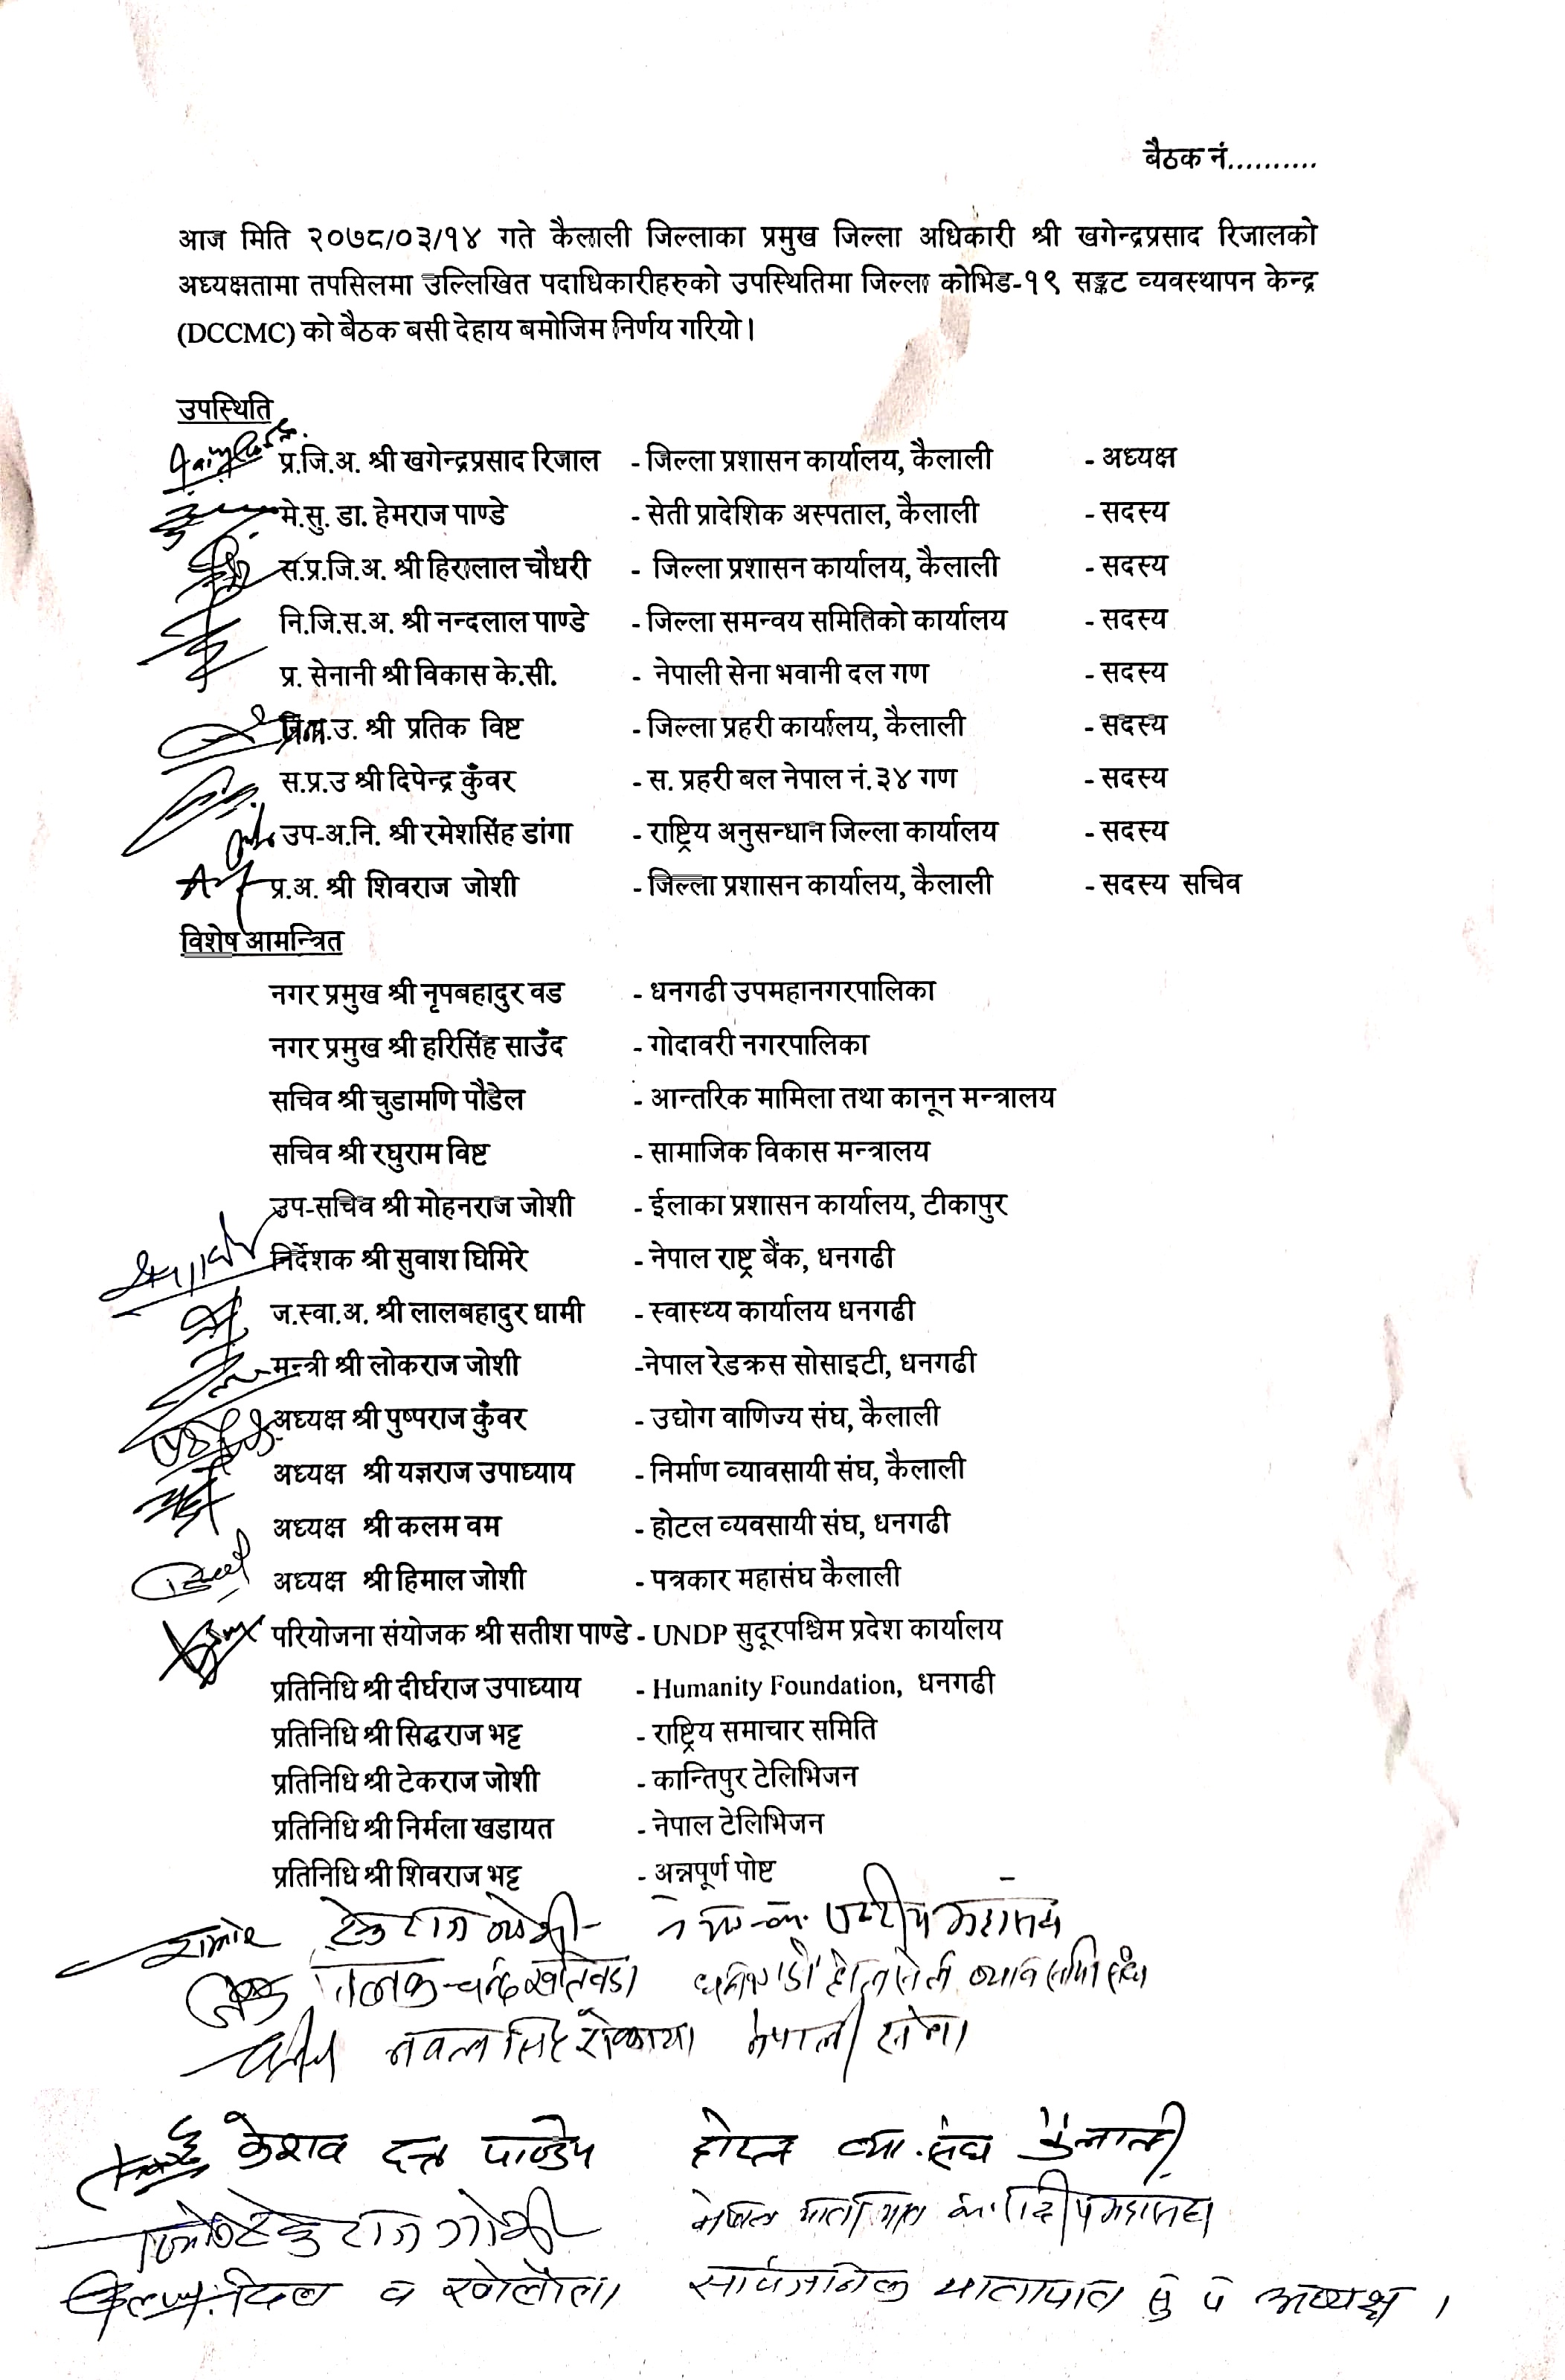 बैठक नं..........
आज मिति २०७८/०३/१४ गते कैलाली जिल्लाका प्रमुख जिल्ला अधिकारी श्री खगेन्द्रप्रसाद रिजालको
अध्यक्षतामा तपसिलमा उल्लिखित पदाधिकारीहरुको उपस्थितिमा जिल्ला कोभिड-१९ सङ्कट व्यवस्थापन केन्द्र
(DCCMC) को बैठक बसी देहाय बमोजिम निर्णय गरियो।
उपस्थिति
प्र.जि.अ. श्री खगेन्द्रप्रसाद रिजाल - जिल्ला प्रशासन कार्यालय, कैलाली - अध्यक्ष
मे.सु. डा. हेमराज पाण्डे - सेती प्रादेशिक अस्पताल, कैलाली - सदस्य
स.प्र.जि.अ. श्री हिरालाल चौधरी - जिल्ला प्रशासन कार्यालय, कैलाली - सदस्य
नि.जि.स.अ. श्री नन्दलाल पाण्डे - जिल्ला समन्वय समितिको कार्यालय - सदस्य
प्र. सेनानी श्री विकास के.सी. - नेपाली सेना भवानी दल गण - सदस्य
प्र.उ. श्री प्रतिक विष्ट - जिल्ला प्रहरी कार्यालय, कैलाली - सदस्य
स.प्र.उ श्री दिपेन्द्र कुँवर - स. प्रहरी बल नेपाल नं.३४ गण - सदस्य
उप-अ.नि. श्री रमेशसिंह डांगा - राष्ट्रिय अनुसन्धान जिल्ला कार्यालय - सदस्य
प्र.अ. श्री शिवराज जोशी - जिल्ला प्रशासन कार्यालय, कैलाली - सदस्य सचिव
विशेष आमन्त्रित
नगर प्रमुख श्री नृपबहादुर वड - धनगढी उपमहानगरपालिका
नगर प्रमुख श्री हरिसिंह साउँद - गोदावरी नगरपालिका
सचिव श्री चुडामणि पौडेल - आन्तरिक मामिला तथा कानून मन्त्रालय
सचिव श्री रघुराम विष्ट - सामाजिक विकास मन्त्रालय
उप-सचिव श्री मोहनराज जोशी - ईलाका प्रशासन कार्यालय, टीकापुर
निर्देशक श्री सुवाश घिमिरे - नेपाल राष्ट्र बैंक, धनगढी
ज.स्वा.अ. श्री लालबहादुर धामी - स्वास्थ्य कार्यालय धनगढी
मन्त्री श्री लोकराज जोशी -नेपाल रेडक्रस सोसाइटी, धनगढी
अध्यक्ष श्री पुष्पराज कुँवर - उद्योग वाणिज्य संघ, कैलाली
अध्यक्ष श्री यज्ञराज उपाध्याय - निर्माण व्यावसायी संघ, कैलाली
अध्यक्ष श्री कलम वम - होटल व्यवसायी संघ, धनगढी
अध्यक्ष श्री हिमाल जोशी - पत्रकार महासंघ कैलाली
परियोजना संयोजक श्री सतीश पाण्डे - UNDP सुदूरपश्चिम प्रदेश कार्यालय
प्रतिनिधि श्री दीर्घराज उपाध्याय - Humanity Foundation, धनगढी
प्रतिनिधि श्री सिद्धराज भट्ट - राष्ट्रिय समाचार समिति
प्रतिनिधि श्री टेकराज जोशी - कान्तिपुर टेलिभिजन
प्रतिनिधि श्री निर्मला खडायत - नेपाल टेलिभिजन
प्रतिनिधि श्री शिवराज भट्ट - अन्नपूर्ण पोष्ट
नवल सिंह नेपाली सेना
केशव दत्त पाण्डेय होटल व्या. संघ कैलाली
सार्वजनिक यातायात अध्यक्ष ।